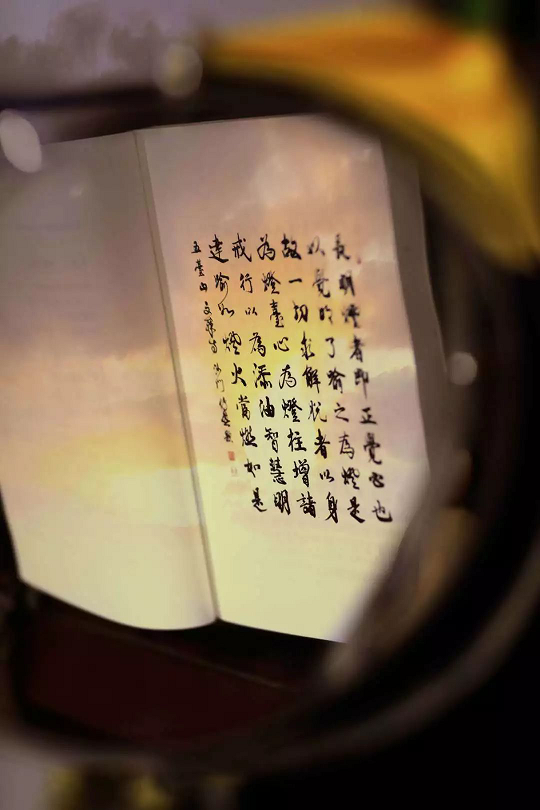 長明燈者即正覺心也
以覺明了喻之為燈是
故一切求解脫者以身
為燈臺心為燈柱增諸
戒行以為添油智慧明
達喻如燈火當燃如是
五臺山文殊寺沙門